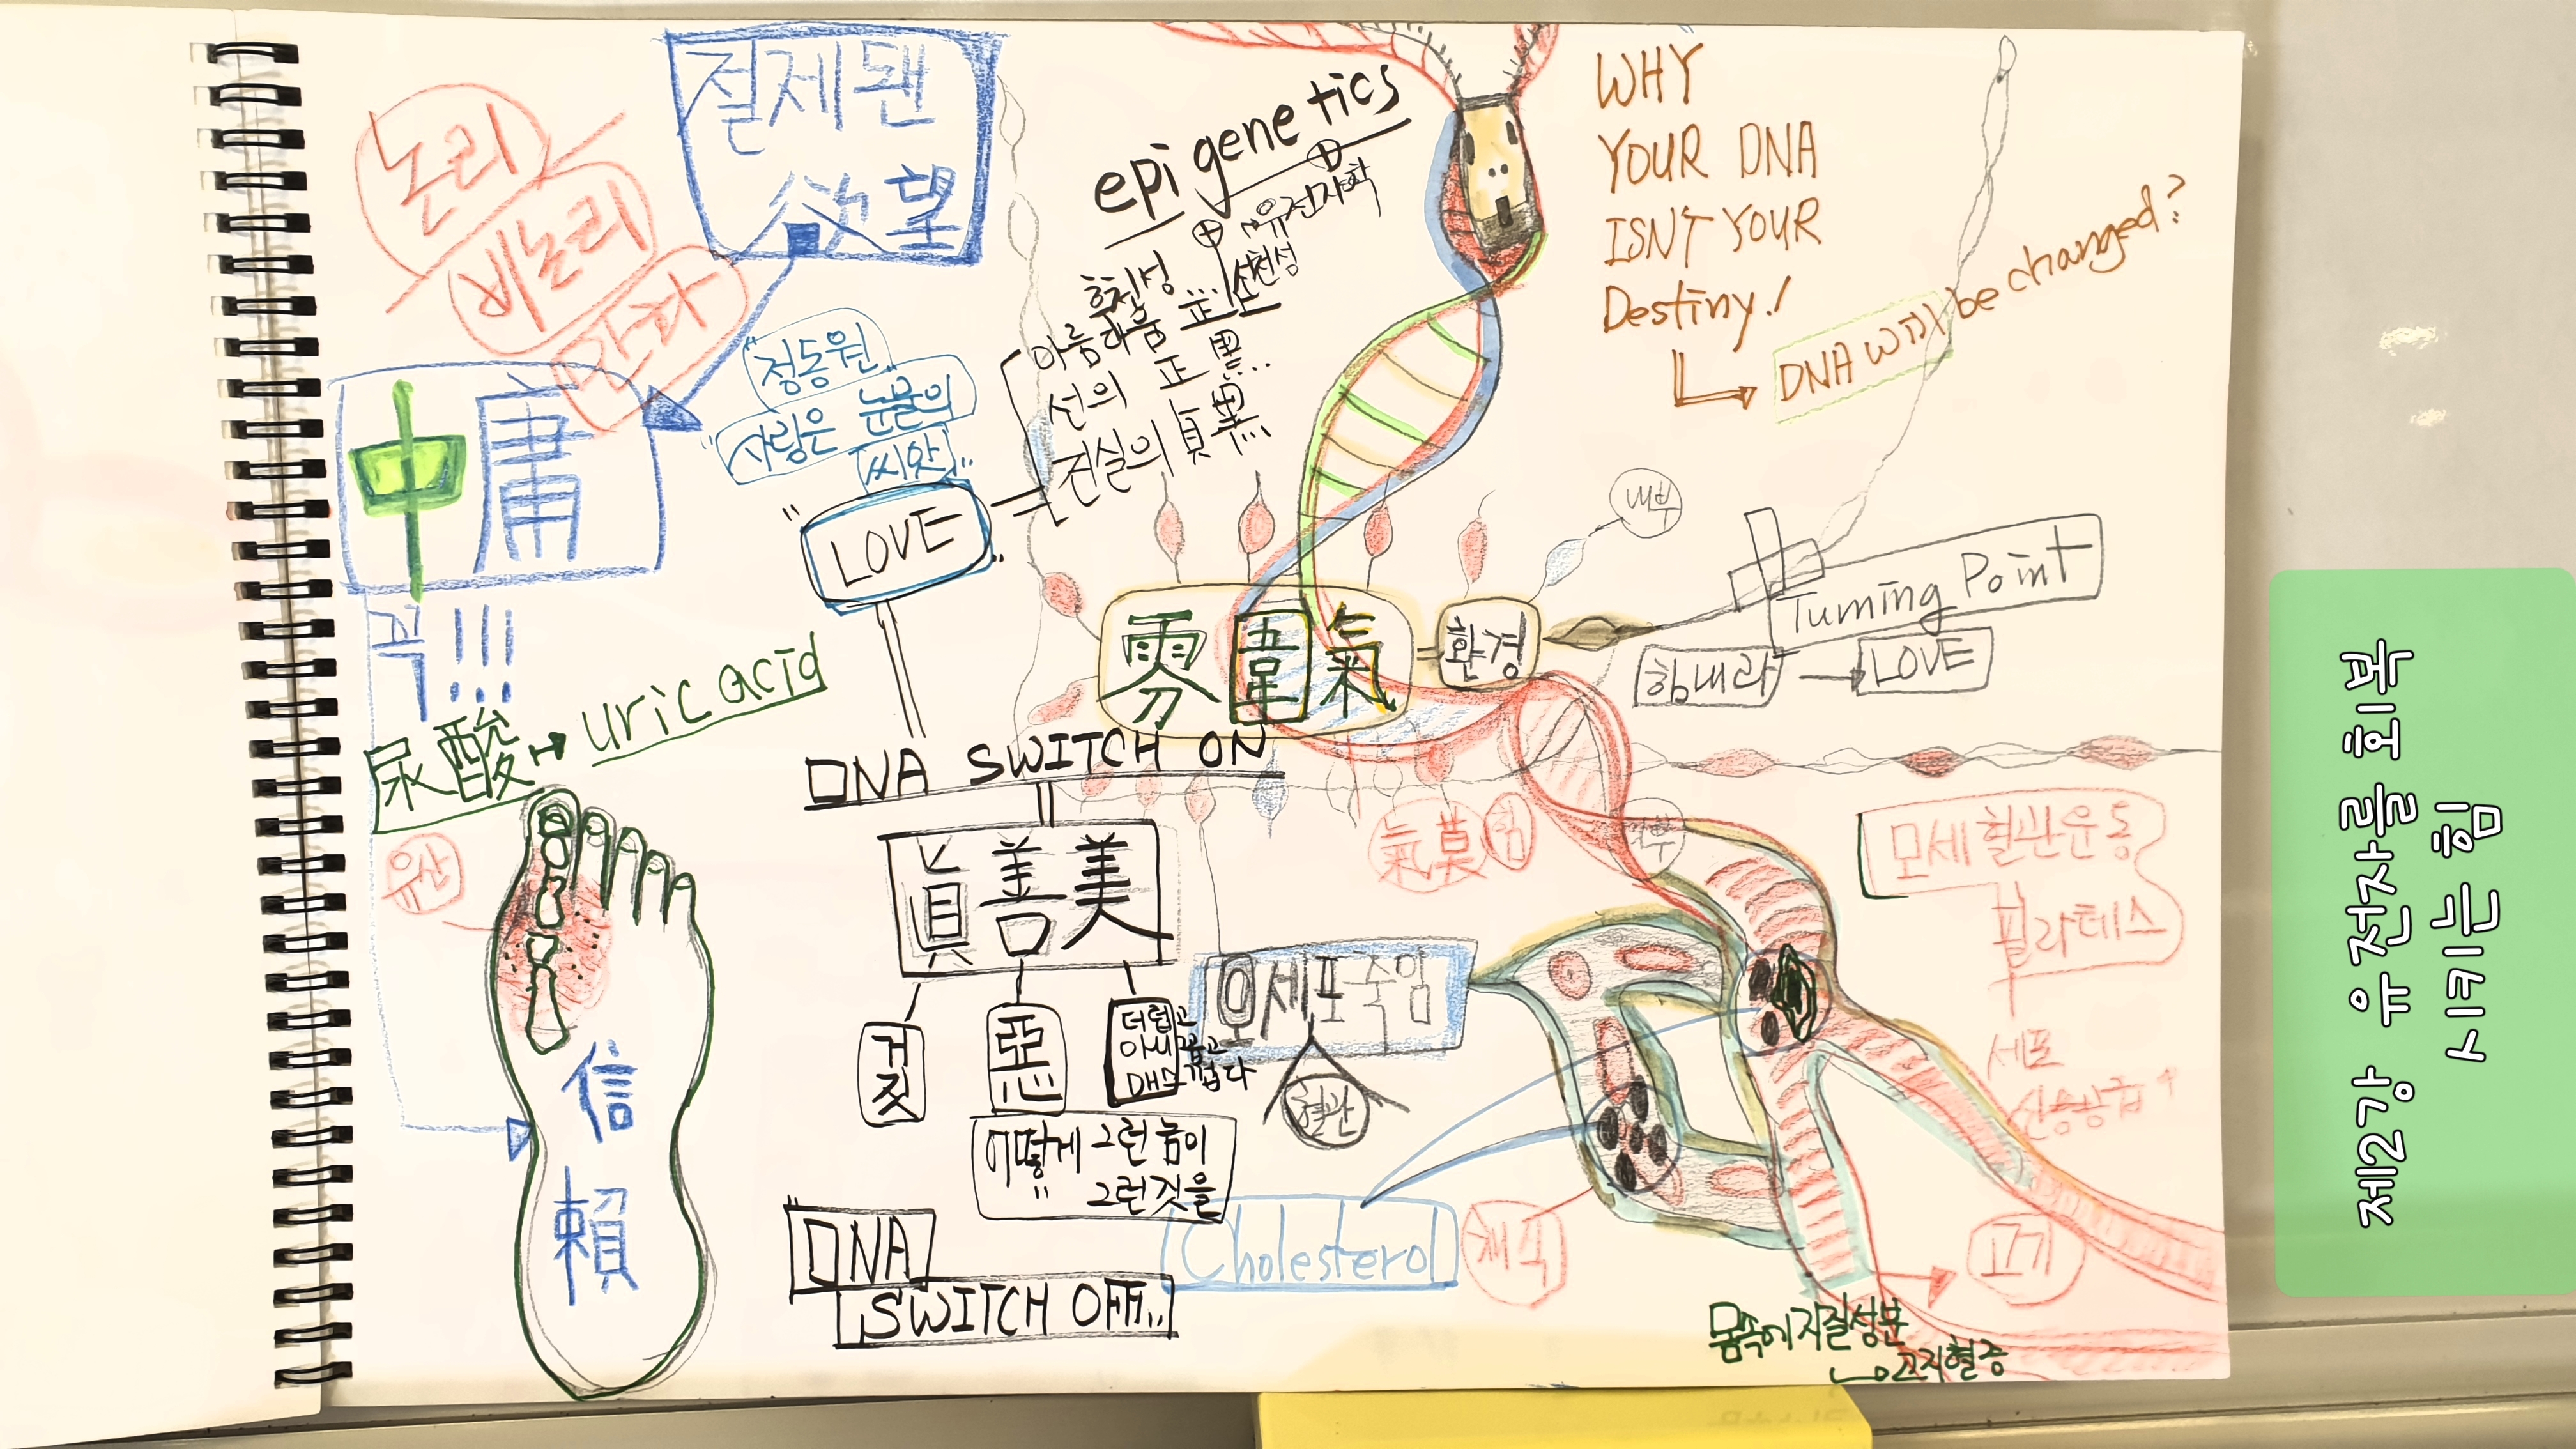 절제된
欲望
논리
비논리
epigenetics
유전자학
후천성
선천성
아름다움 正
선의 正 黑..
진실의 眞 黑
WHY
YOUR DNA
ISN'T YOUR
Destiny!
DNA will be changed?
中庸
꼭!!!
"정동원"
"사랑은 눈물의
씨앗"
"LOVE"
내부
雰圍氣
환경
Turning Point
힘내라 → LOVE
尿酸 → uric acid
DNA SWITCH ON
眞善美
요산
信
賴
거짓
惡
더럽고
아니꼽고
매스껍다
어떻게 그런 놈이
그런것을
"DNA
SWITCH OFF..
모세포죽임
혈관
모세혈관운동
필라테스
세포
산소공급↑
Cholesterol
채식
고기
몸속에지질성분
고지혈증
제2강 유전자를 회복
시키는 힘